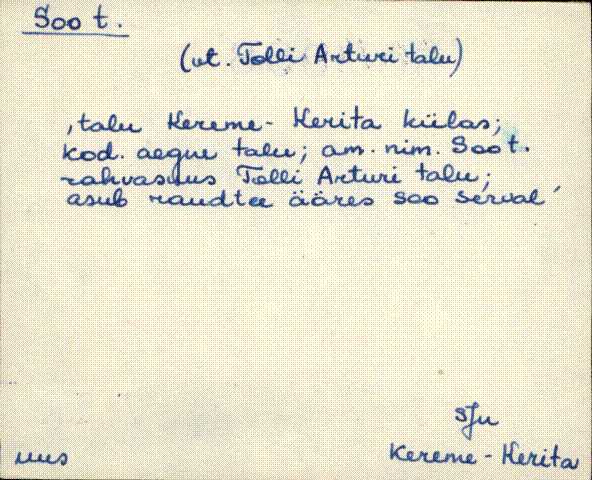 Soo t.
(vt. Tolli Arturi talu)
, talu Kereme-Kerita külas;
kod. aegne talu; am. nim. Soo t.
rahvasuus Tolli Arturi talu;
asub raudtee ääres soo serval'
SJu
uus
Kereme-Kerita